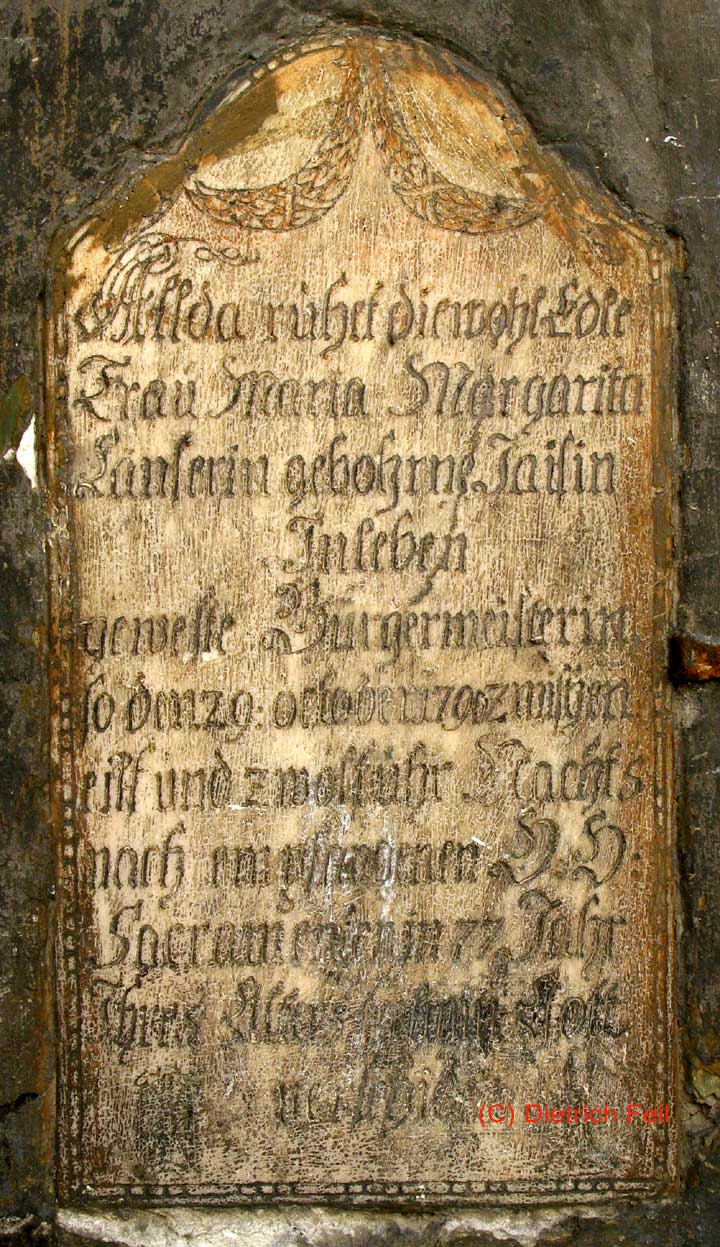 Allda rühet die wohl Edle
Frau Maria Margarita
Lanserin gebohrne Jaisin
In leben
geweste Bürgermeisterin
so den 29. october 1790 zwischen
eilf und zwolf uhr Nachts
nach empfangenen H. H.
Sacramenten in 77 Jahr
Ihres Alters seelig in Gott
(C) Dietrich Feil